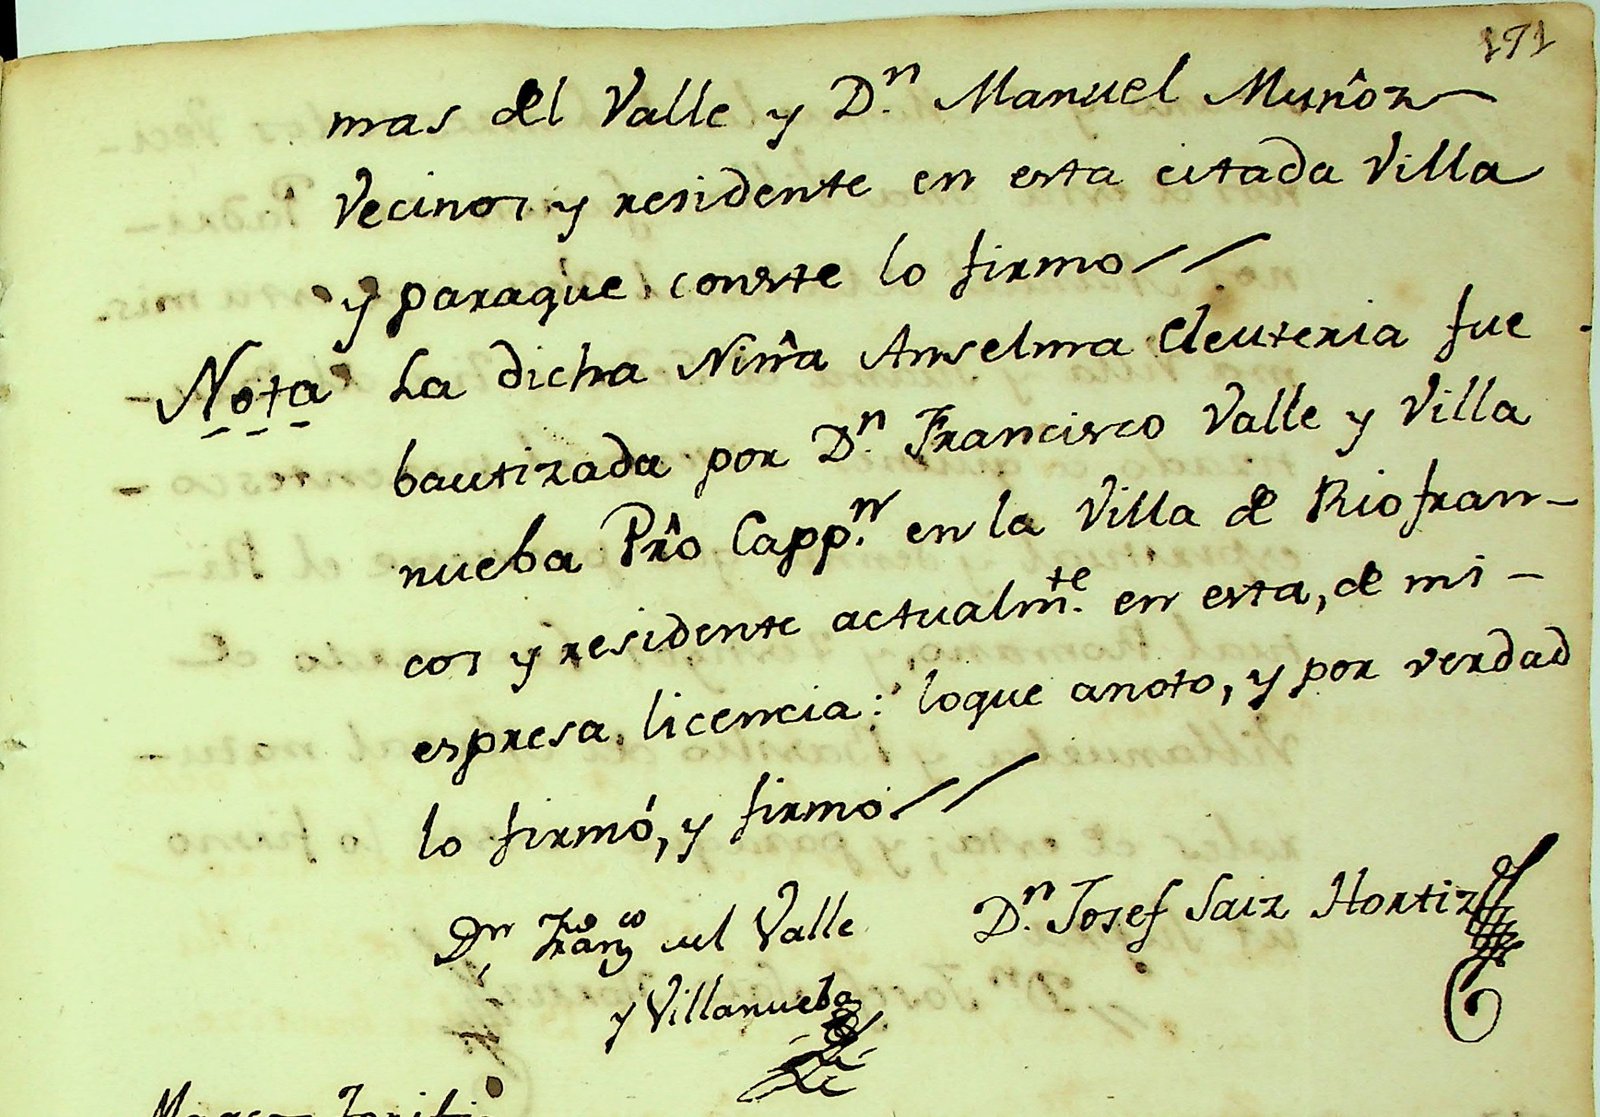 191
mas del Valle y D.n Manuel Muñoz
Vecinos y residente en esta citada Villa
y paraque conste lo firmo//
Nota La dicha Niña Anselma Eleuteria fue
bautizada por D.n Francisco Valle y Villa
nueba Pro Capp.n en la Villa de Riofran-
cos y residente actualm.te en esta, de mi-
espresa licencia: loque anoto, y por verdad
lo firmó, y firmo//
Dn Franco del Valle D.n Josef Saiz Hortiz
y Villanueba